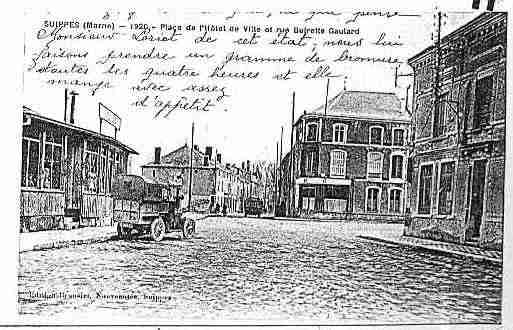 SUIPPES (Marne) - 1920 - Place de l'Hôtel de Ville et rue Buirette Gaulard
Monsieur Loriot de cet état, nous lui
faisons prendre un gramme de bromure
toutes les quatre heures et elle
mange avec assez
d'appétit.
Suippes